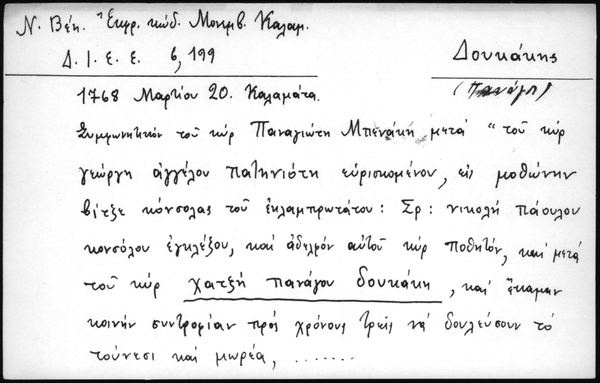 Ν. Βέη. Ἔκφρ. κώδ. Μονεμβ. Καλαμ.
Δ. Ι. Ε. Ε. 6, 199
Δουκάκης
(Πανάγος)
1768 Μαρτίου 20. Καλαμάτα.
Συμφωνητικόν τοῦ κὺρ Παναγιώτη Μπενάκη μετά "τοῦ κὺρ
γεώργη ἀγγέλου πατηνιότη εὑρισκομένου, εἰς μοθώνην
βίτζε κόνσολας τοῦ ἐκλαμπρωτάτου: Σρ: νικολῆ πάουλου
κονσόλου ἐγκλέζου, καὶ ἀδελφόν αὐτοῦ κὺρ ποθητόν, καὶ μετά
τοῦ κὺρ χατζῆ πανάγου δουκάκη, καὶ ἔκαμαν
κοινὴν συντροφίαν πρὸς χρόνους τρεῖς νὰ δουλεύσουν τὸ
τούνεσι καὶ μωρέα, .......